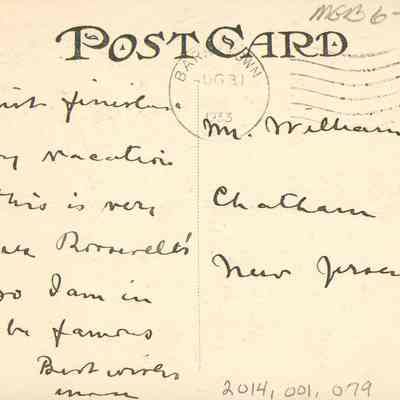 MGB 6-
POST CARD
AUG 31
1933
finishe
vacation
this is very
Roosevelt's
so I am in
be famous
Best wishes
Mr. William
Chatham
New Jersey
2014.001.079